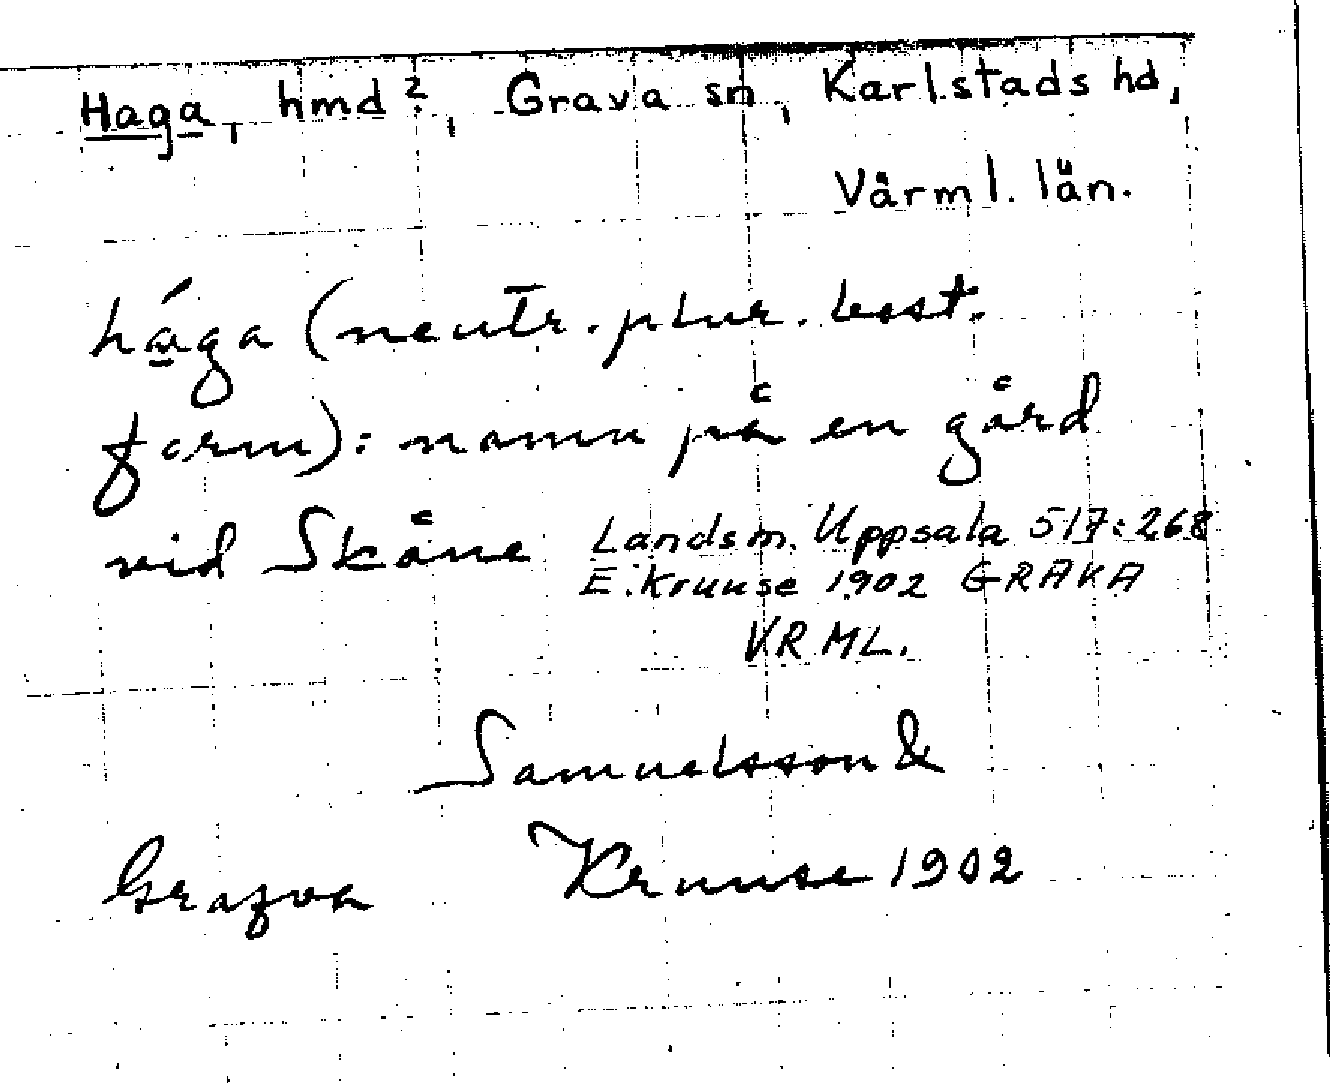 Haga, hmd?, Grava sn, Karlstads hd,
Värml. län.
hága (neutr. plur. best.
form): namn på en gård
vid Skåne Landsm. Uppsala 517:268
E. Kruuse 1902 GRAVA
VRML.
Samuelsson &
Grafva Kruuse 1902